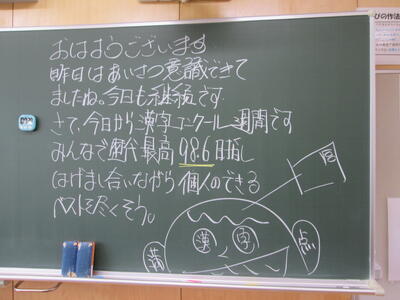 おはようございます
昨日はあいさつ意識できて
ましたね。今日も継続です。
さて、今日から漢字コンクール週間です
みんなで歴代最高98.6目指し
はげまし合いながら個人のできる
ベストを尽くそう。
満
漢
字
点
びの作法